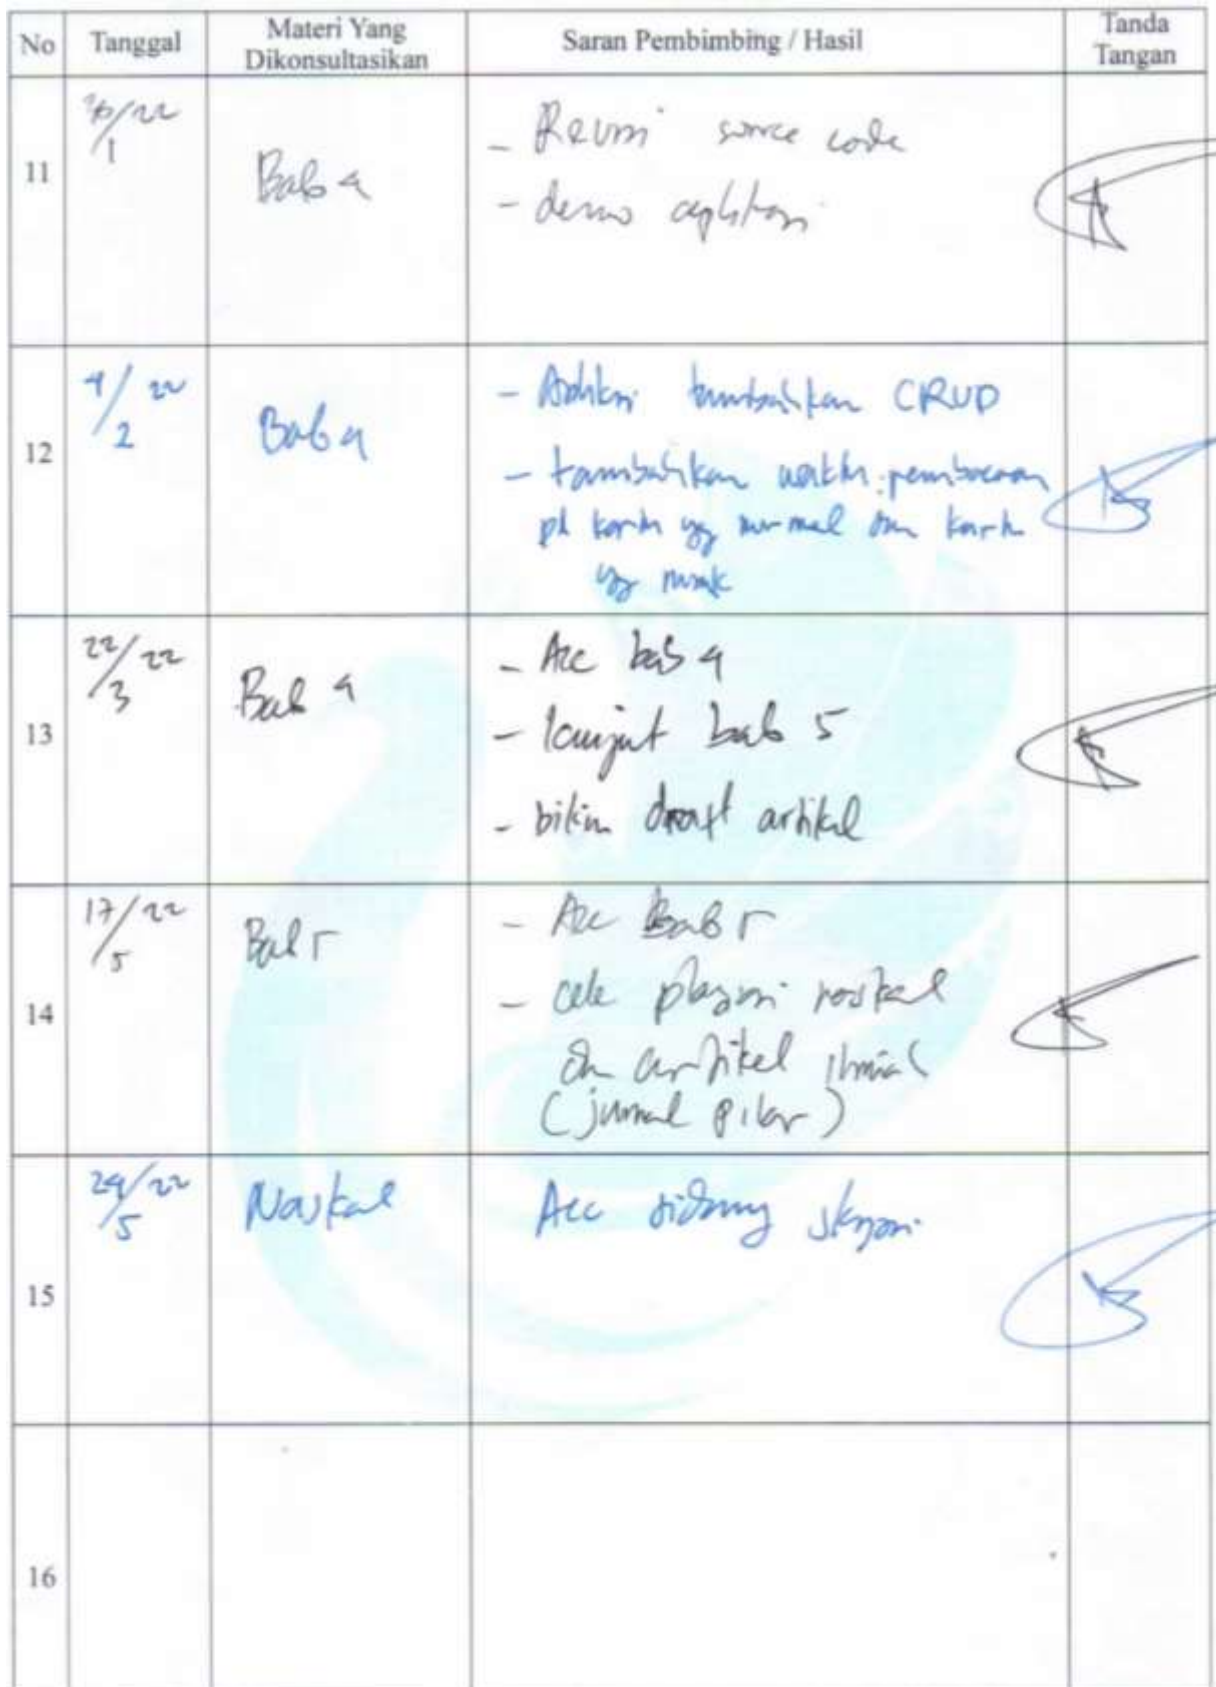 No Tanggal Materi Yang Dikonsultasikan Saran Pembimbing / Hasil Tanda Tangan
11 /22 1 Bab 4
- Revisi source code
- demo aplikasi
12 4/22 2 Bab 4
- Aplikasi tambahkan CRUD
- tambahkan waktu pembacaan
pd kartu yg normal dan kartu
yg rusak
13 22/22 3 Bab 4
- Acc bab 4
- lanjut bab 5
- bikin draft artikel
14 17/22 5 Bab 5
- Acc Bab 5
- cek plagiasi naskah
dn artikel ilmiah
(jurnal pilar)
15 24/22 5 Naskah Acc sidang skripsi
16